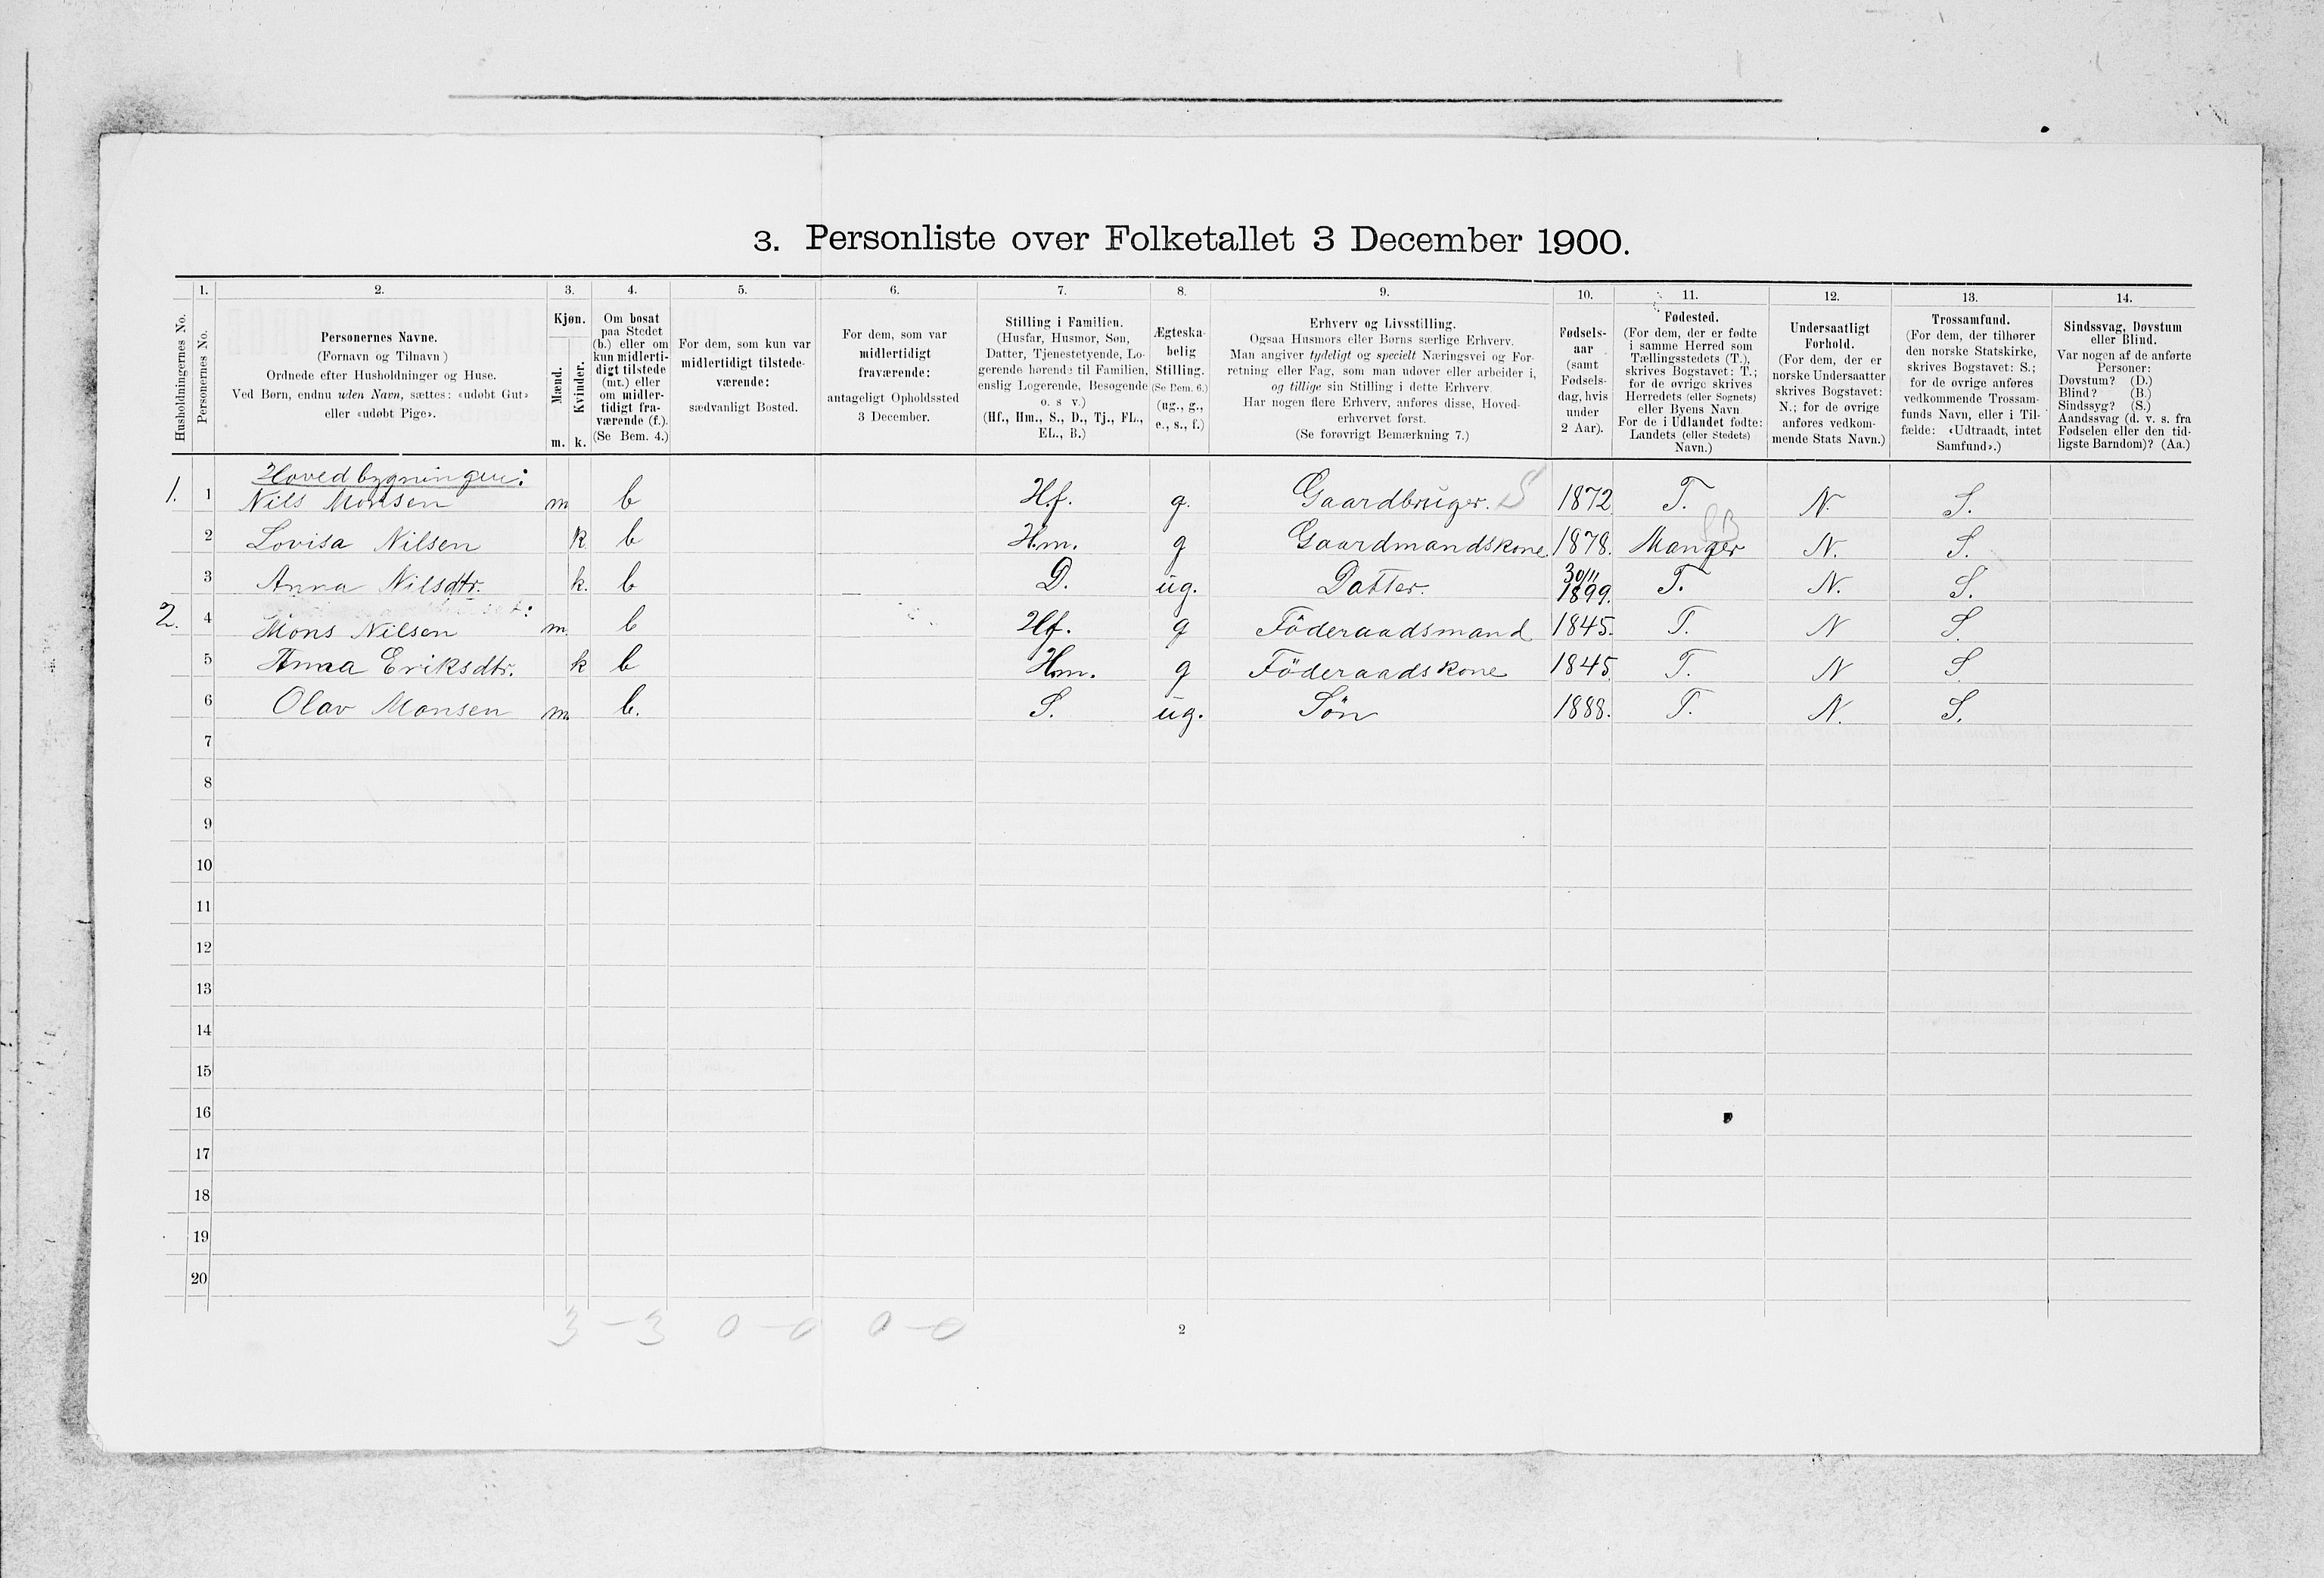 3. Personliste over Folketallet 3 December 1900.
1. 2. 3. 4. 5. 6. 7. 8. 9. 10. 11. 12. 13. 14.
Husholdningernes No.
Personernes No.
Personernes Navne.
(Fornavn og Tilnavn)
Ordnede efter Husholdninger og Huse.
Ved Børn, endnu uden Navn, sættes: «udøbt Gut»
eller «udøbt Pige».
Kjøn.
Mænd.
Kvinder.
m. k.
Om bosat
paa Stedet
(b.) eller om
kun midlerti-
digt tilstede
(mt.) eller
om midler-
tidigt fra-
værende (f.).
(Se Bem. 4.)
For dem, som kun var
midlertidigt tilstede-
værende:
sædvanligt Bosted.
For dem, som var
midlertidigt
fraværende:
antageligt Opholdssted
3 December.
Stilling i Familien.
(Husfar, Husmor, Søn,
Datter, Tjenestetyende, Lo-
gerende hørende til Familien,
enslig Logerende, Besøgende
o. s v.)
(Hf., Hm., S., D., Tj., FL.,
EL., B.)
Ægteska-
belig
Stilling.
(Se Bem. 6.)
(ug., g.,
e., s., f.)
Erhverv og Livsstilling.
Ogsaa Husmors eller Børns særlige Erhverv.
Man angiver tydeligt og specielt Næringsvei og For-
retning eller Fag, som man udøver eller arbeider i,
og tillige sin Stilling i dette Erhverv.
Har nogen flere Erhverv, anføres disse, Hoved-
erhvervet først.
(Se forøvrigt Bemærkning 7.)
Fødsels-
aar
(samt
Fødsels-
dag, hvis
under
2 Aar).
Fødested.
(For dem, der er fødte
i samme Herred som
Tællingsstedets (T.),
skrives Bogstavet: T.;
for de øvrige skrives
Herredets (eller Sognets)
eller Byens Navn.
For de i Udlandet fødte:
Landets (eller Stedets)
Navn.)
Undersaatligt
Forhold.
(For dem, der er
norske Undersaatter
skrives Bogstavet:
N.; for de øvrige
anføres vedkom-
mende Stats Navn.)
Trossamfund.
(For dem, der tilhører
den norske Statskirke,
skrives Bogstavet: S.;
for de øvrige anføres
vedkommende Trossam-
funds Navn, eller i Til-
fælde: «Udtraadt, intet
Samfund».)
Sindssvag, Døvstum
eller Blind.
Var nogen af de anførte
Personer:
Døvstum? (D.)
Blind? (B.)
Sindssyg? (S.)
Aandssvag (d. v. s. fra
Fødselen eller den tid-
ligste Barndom)? (Aa.)
Hovedbygningen:
1. 1 Nils Monsen m b Hf. g. Gaardbruger. S 1872 T. N. S.
2 Lovisa Nilsen k b Hm. g Gaardmandskone. 1878. Manger N. S.
3 Anna Nilsdtr. k. b D. ug. Datter. 30/11 1899. T. N. S.
2. 4 Mons Nilsen m. b Hf. g Föderaadsmand 1845. T. N S.
5 Anna Eriksdtr. k b Hm. g Föderaadskone 1845. T. N S
6 Olav Monsen m. b. S. ug. Sön 1888. T. N. S.
7
8
9
10
11
12
13
14
15
16
17
18
19
20
3 – 3 0 – 0 0 – 0
2